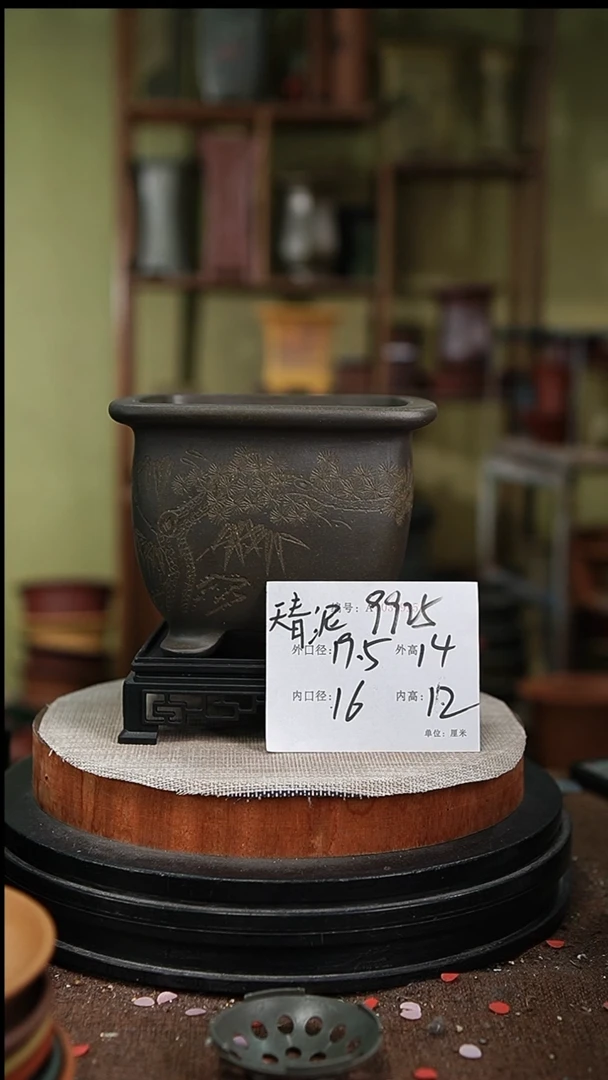 天青泥 号: 9925
外口径: 17.5 外高: 14
内口径: 16 内高: 12
单位: 厘米